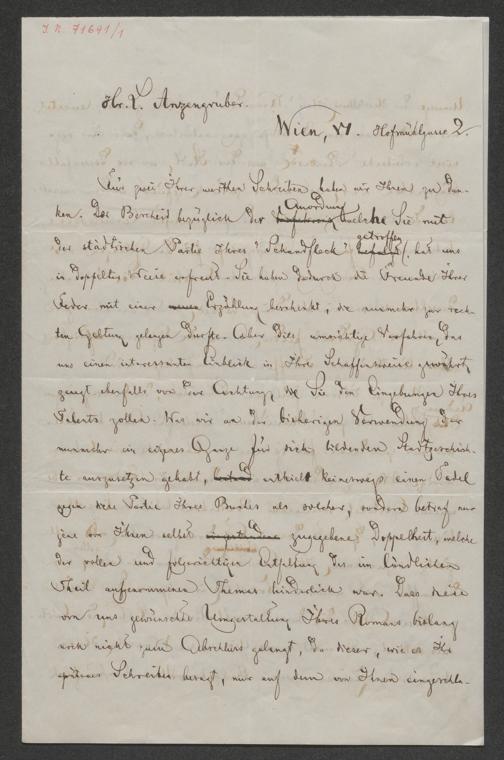 J. N. 71691/1
Hr. L. Anzengruber.
Wien, VI. Hofmühlgasse 2.
Für zwei Ihrer werthen Schreiben haben wir Ihnen zu dan-
ken. Der Bescheid bezüglich der Anordnung welche Sie mit
der städtischen Partie Ihres "Schandfleck" getroffen, hat uns
in doppelter Weise erfreut. Sie haben dadurch die Freunde Ihrer
Feder mit einer neuen Erzählung beschenkt, die nunmehr zur rech-
ten Geltung gelangen dürfte. Aber dies umsichtige Verfahren, das
uns einen interessanten Einblick in Ihre Schaffensweise gewährt,
zeugt ebenfalls von der Achtung, die Sie den Eingebungen Ihres
Talents zollen. Was wir an der bisherigen Verwendung der
nunmehr ein eigenes Ganze für sich bildenden Stadtgeschich-
te auszusetzen gehabt, enthielt keineswegs einen Tadel
gegen diese Partie Ihres Buches als solcher, sondern betraf nur
jene von Ihnen selbst zugegebene Doppelheit, welche
der vollen und folgerichtigen Entfaltung des im ländlichen
Theil aufgenommenen Themas hinderlich war. Dass diese
von uns gewünschte Umgestaltung Ihres Romans bislang
noch nicht zum Abschluss gelangt, da dieser, wie es Ihr
späteres Schreiben besagt, nur auf dem von Ihnen eingeschla-